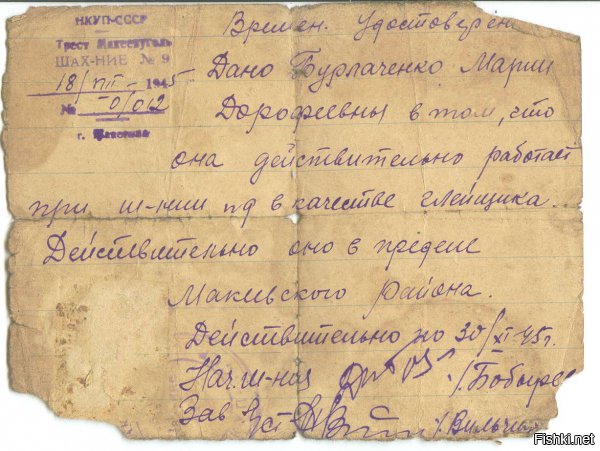 НКУП-СССР
Трест Макеевуголь
ШАХ-НИЕ № 9
18/VII- 1945
№ 0/012
г. Макеевка
Времен. Удостоверен
Дано Бурлаченко Марии
Дорофеевны в том, что
она действительно работает
при ш-нии в качестве
Действительно оно в пределе
Макевского района.
Действительно по 30/XI 45г.
Нач. ш-ния /Бобырев
Зав
Fishki.net